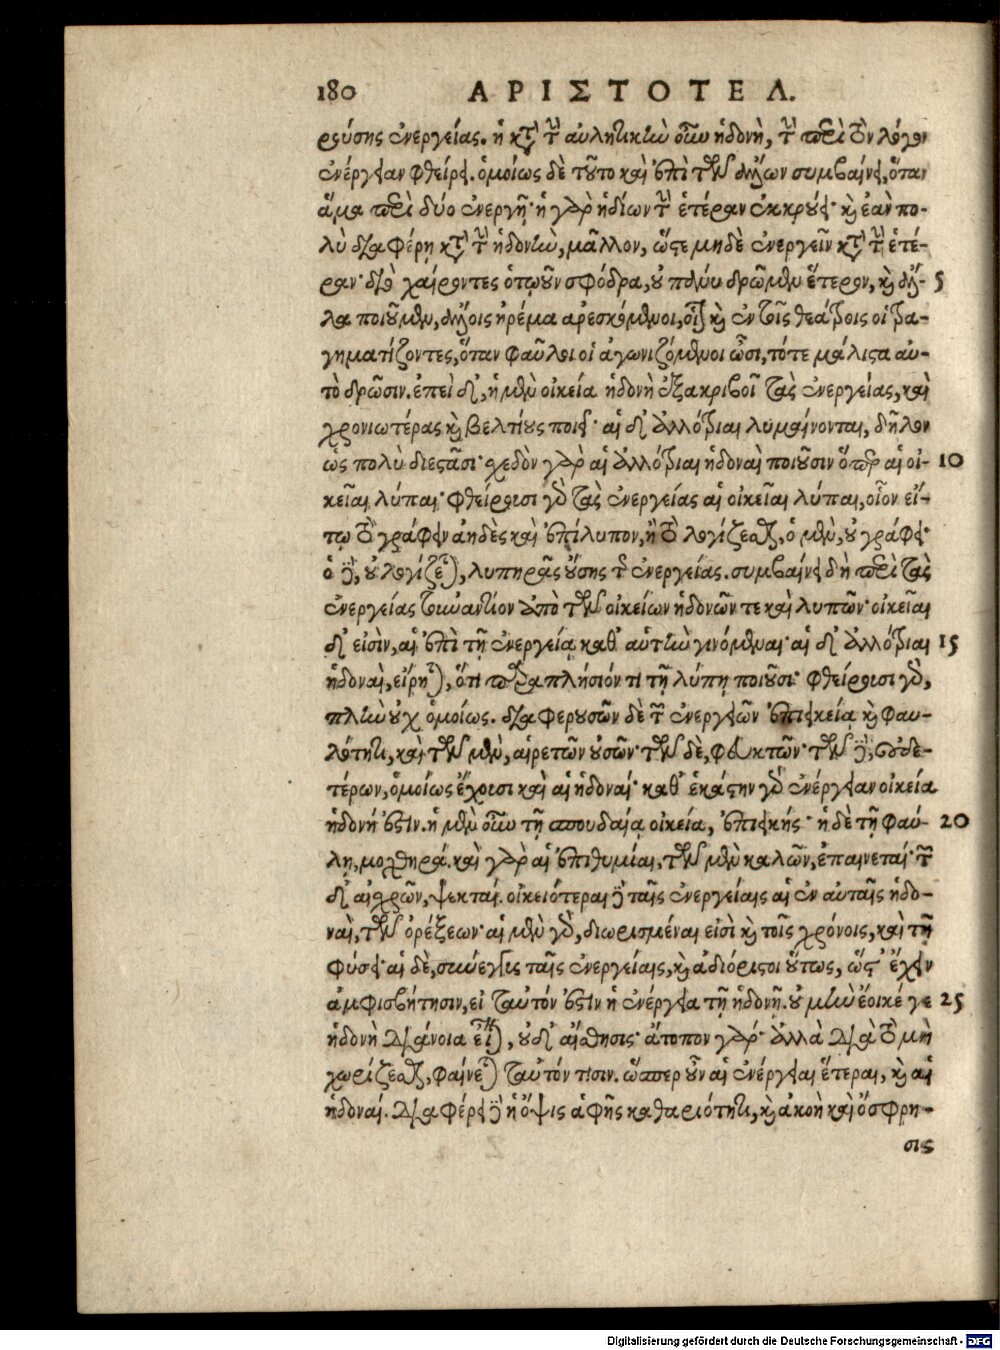 180 ΑΡΙΣΤΟΤΕΛ.
ρούσης ἐνεργείας. ἡ κατὰ τὴν αὐλητικὴν οὖν ἡδονὴ, τὴν περὶ τὸν λόγον
ἐνέργειαν φθείρει. ὁμοίως δὲ τοῦτο καὶ ἐπὶ τῶν ἄλλων συμβαίνει, ὅταν
ἅμα περὶ δύο ἐνεργῇ· ἡ γὰρ ἡδίων τὴν ἑτέραν ἐκκρούει· καὶ ἐὰν πο-
λὺ διαφέρῃ κατὰ τὴν ἡδονὴν, μᾶλλον, ὥστε μηδὲ ἐνεργεῖν κατὰ τὴν ἑτέ-
ραν· διὸ χαίροντες ὁτῳοῦν σφόδρα, οὐ πάνυ δρῶμεν ἕτερον, καὶ ἄλ- 5
λα ποιοῦμεν, ἄλλοις ἠρέμα ἀρεσκόμενοι, οἷον καὶ ἐν τοῖς θεάτροις οἱ τρα-
γηματίζοντες, ὅταν φαῦλοι οἱ ἀγωνιζόμενοι ὦσι, τότε μάλιστα αὐ-
τὸ δρῶσιν. ἐπεὶ δ', ἡ μὲν οἰκεία ἡδονὴ ἐξακριβοῖ τὰς ἐνεργείας, καὶ
χρονιωτέρας καὶ βελτίους ποιεῖ· αἱ δ' ἀλλότριαι λυμαίνονται, δῆλον
ὡς πολὺ διεστᾶσι· σχεδὸν γὰρ αἱ ἀλλότριαι ἡδοναὶ ποιοῦσιν ὅπερ αἱ οἰ- 10
κεῖαι λύπαι· φθείρουσι γὰρ τὰς ἐνεργείας αἱ οἰκεῖαι λύπαι, οἷον εἴ-
τῳ τὸ γράφειν ἀηδὲς καὶ ἐπίλυπον, ἢ τὸ λογίζεσθαι, ὁ μὲν, οὐ γράφει·
ὁ δὲ, οὐ λογίζεται, λυπηρᾶς οὔσης τῆς ἐνεργείας. συμβαίνει δὴ περὶ τὰς
ἐνεργείας τοὐναντίον ἀπὸ τῶν οἰκείων ἡδονῶν τε καὶ λυπῶν· οἰκεῖαι
δ' εἰσὶν, αἱ ἐπὶ τῇ ἐνεργείᾳ καθ' αὑτὴν γινόμεναι· αἱ δ' ἀλλότριαι 15
ἡδοναὶ, εἴρηται, ὅτι παραπλήσιόν τι τῇ λύπῃ ποιοῦσι· φθείρουσι γὰρ,
πλὴν οὐχ ὁμοίως. διαφερουσῶν δὲ τῶν ἐνεργειῶν ἐπιεικείᾳ καὶ φαυ-
λότητι, καὶ τῶν μὲν, αἱρετῶν οὐσῶν· τῶν δὲ, φευκτῶν· τῶν δὲ, οὐδε-
τέρων, ὁμοίως ἔχουσι καὶ αἱ ἡδοναί· καθ' ἑκάστην γὰρ ἐνέργειαν οἰκεία
ἡδονή ἐστιν. ἡ μὲν οὖν τῇ σπουδαίᾳ οἰκεία, ἐπιεικής· ἡ δὲ τῇ φαύ- 20
λῃ, μοχθηρά. καὶ γὰρ αἱ ἐπιθυμίαι, τῶν μὲν καλῶν, ἐπαινεταί· τῶν
δ' αἰσχρῶν, ψεκταί. οἰκειότεραι δὲ ταῖς ἐνεργείαις αἱ ἐν αὐταῖς ἡδο-
ναὶ, τῶν ὀρέξεων· αἱ μὲν γὰρ, διωρισμέναι εἰσὶ καὶ τοῖς χρόνοις, καὶ τῇ
φύσει· αἱ δὲ, σύνεγγυς ταῖς ἐνεργείαις, καὶ ἀδιόριστοι οὕτως, ὥστ' ἔχειν
ἀμφισβήτησιν, εἰ ταὐτόν ἐστιν ἡ ἐνέργεια τῇ ἡδονῇ. οὐ μὴν ἔοικέ γε 25
ἡδονὴ διάνοια εἶναι, οὐδ' αἴσθησις· ἄτοπον γάρ· ἀλλὰ διὰ τὸ μὴ
χωρίζεσθαι, φαίνεται ταὐτόν τισιν. ὥσπερ οὖν αἱ ἐνέργειαι ἕτεραι, καὶ αἱ
ἡδοναί. διαφέρει δὲ ἡ ὄψις ἁφῆς καθαριότητι, καὶ ἀκοὴ καὶ ὄσφρη-
σις
Digitalisierung gefördert durch die Deutsche Forschungsgemeinschaft - DFG